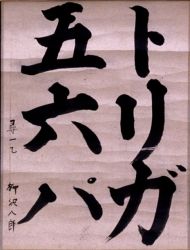 トリガ
五六パ
尋一乙
柳沢八郎